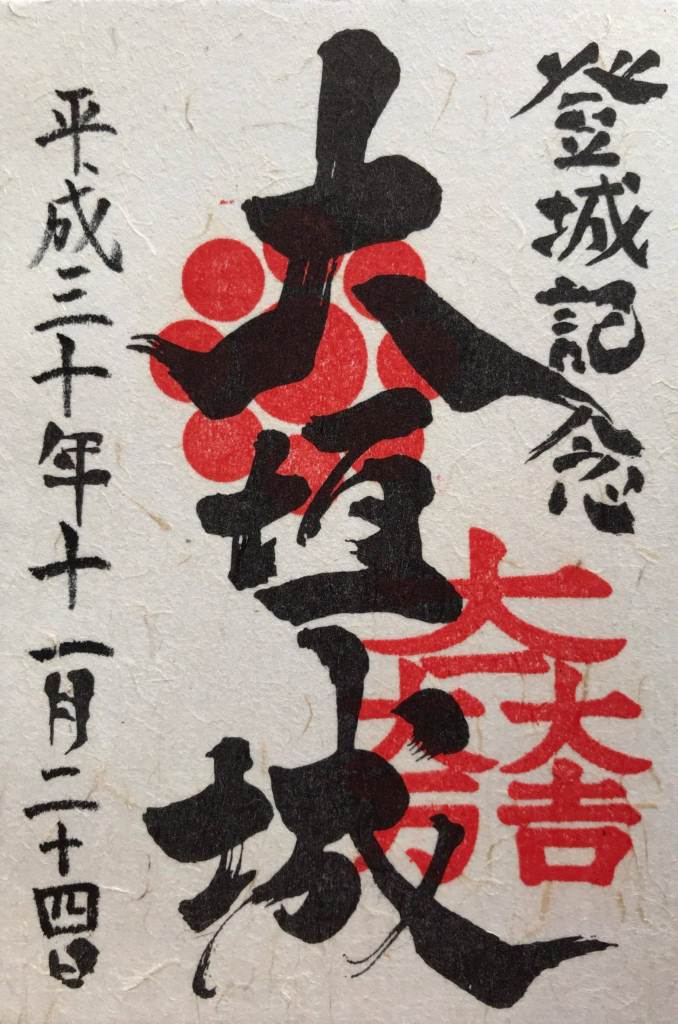 登城記念
大垣城
大一大万大吉
平成三十年十一月二十四日